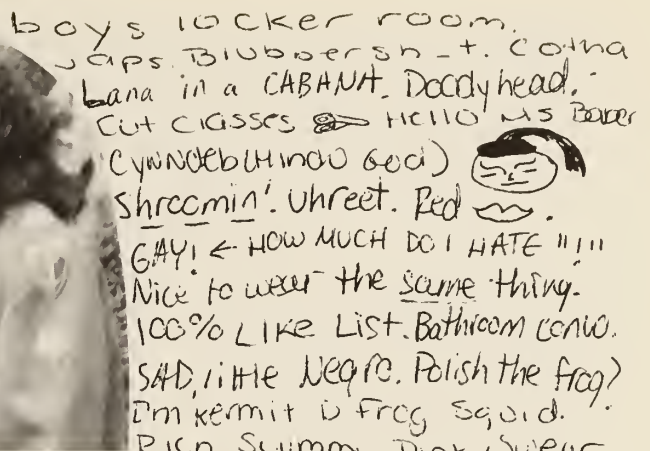 boys locker room.
Japs. Blubbersh_t. Cotna
bana in a CABANA. Doodyhead.
Cut classes HELLO MS Baber
(Hindu God)
Shroomin'. Uhreet. Red .
GAY! ← HOW MUCH DO I HATE "!"
Nice to wear the same thing.
100% LIKE List. Bathroom convo.
SAD, little Negro. Polish the frog?
I'm Kermit D Frog Squid.